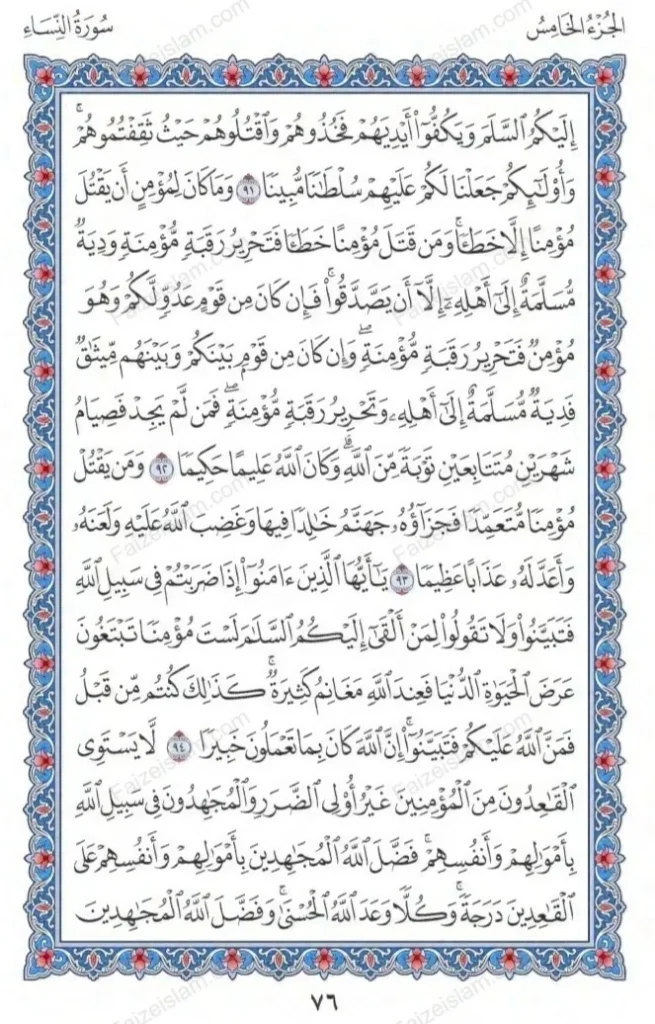 الجُزْءُ الخَامِسُ
سُورَةُ النِّسَاءِ
إِلَيْكُمُ ٱلسَّلَمَ وَيَكُفُّوٓا۟ أَيْدِيَهُمْ فَخُذُوهُمْ وَٱقْتُلُوهُمْ حَيْثُ ثَقِفْتُمُوهُمْ ۚ
وَأُو۟لَـٰٓئِكُمْ جَعَلْنَا لَكُمْ عَلَيْهِمْ سُلْطَـٰنًا مُّبِينًا ٩١ وَمَا كَانَ لِمُؤْمِنٍ أَن يَقْتُلَ
مُؤْمِنًا إِلَّا خَطَـًٔا ۚ وَمَن قَتَلَ مُؤْمِنًا خَطَـًٔا فَتَحْرِيرُ رَقَبَةٍ مُّؤْمِنَةٍ وَدِيَةٌ
مُّسَلَّمَةٌ إِلَىٰٓ أَهْلِهِۦٓ إِلَّآ أَن يَصَّدَّقُوا۟ ۚ فَإِن كَانَ مِن قَوْمٍ عَدُوٍّ لَّكُمْ وَهُوَ
مُؤْمِنٌ فَتَحْرِيرُ رَقَبَةٍ مُّؤْمِنَةٍ ۖ وَإِن كَانَ مِن قَوْمٍۭ بَيْنَكُمْ وَبَيْنَهُم مِّيثَـٰقٌ
فَدِيَةٌ مُّسَلَّمَةٌ إِلَىٰٓ أَهْلِهِۦ وَتَحْرِيرُ رَقَبَةٍ مُّؤْمِنَةٍ ۖ فَمَن لَّمْ يَجِدْ فَصِيَامُ
شَهْرَيْنِ مُتَتَابِعَيْنِ تَوْبَةً مِّنَ ٱللَّهِ ۗ وَكَانَ ٱللَّهُ عَلِيمًا حَكِيمًا ٩٢ وَمَن يَقْتُلْ
مُؤْمِنًا مُّتَعَمِّدًا فَجَزَآؤُهُۥ جَهَنَّمُ خَـٰلِدًا فِيهَا وَغَضِبَ ٱللَّهُ عَلَيْهِ وَلَعَنَهُۥ
وَأَعَدَّ لَهُۥ عَذَابًا عَظِيمًا ٩٣ يَـٰٓأَيُّهَا ٱلَّذِينَ ءَامَنُوٓا۟ إِذَا ضَرَبْتُمْ فِى سَبِيلِ ٱللَّهِ
فَتَبَيَّنُوا۟ وَلَا تَقُولُوا۟ لِمَنْ أَلْقَىٰٓ إِلَيْكُمُ ٱلسَّلَـٰمَ لَسْتَ مُؤْمِنًا تَبْتَغُونَ
عَرَضَ ٱلْحَيَوٰةِ ٱلدُّنْيَا فَعِندَ ٱللَّهِ مَغَانِمُ كَثِيرَةٌ ۚ كَذَٰلِكَ كُنتُم مِّن قَبْلُ
فَمَنَّ ٱللَّهُ عَلَيْكُمْ فَتَبَيَّنُوٓا۟ ۚ إِنَّ ٱللَّهَ كَانَ بِمَا تَعْمَلُونَ خَبِيرًا ٩٤ لَّا يَسْتَوِى
ٱلْقَـٰعِدُونَ مِنَ ٱلْمُؤْمِنِينَ غَيْرُ أُو۟لِى ٱلضَّرَرِ وَٱلْمُجَـٰهِدُونَ فِى سَبِيلِ ٱللَّهِ
بِأَمْوَٰلِهِمْ وَأَنفُسِهِمْ ۚ فَضَّلَ ٱللَّهُ ٱلْمُجَـٰهِدِينَ بِأَمْوَٰلِهِمْ وَأَنفُسِهِمْ عَلَى
ٱلْقَـٰعِدِينَ دَرَجَةً ۚ وَكُلًّا وَعَدَ ٱللَّهُ ٱلْحُسْنَىٰ ۚ وَفَضَّلَ ٱللَّهُ ٱلْمُجَـٰهِدِينَ
٧٦
Faizeislam.com